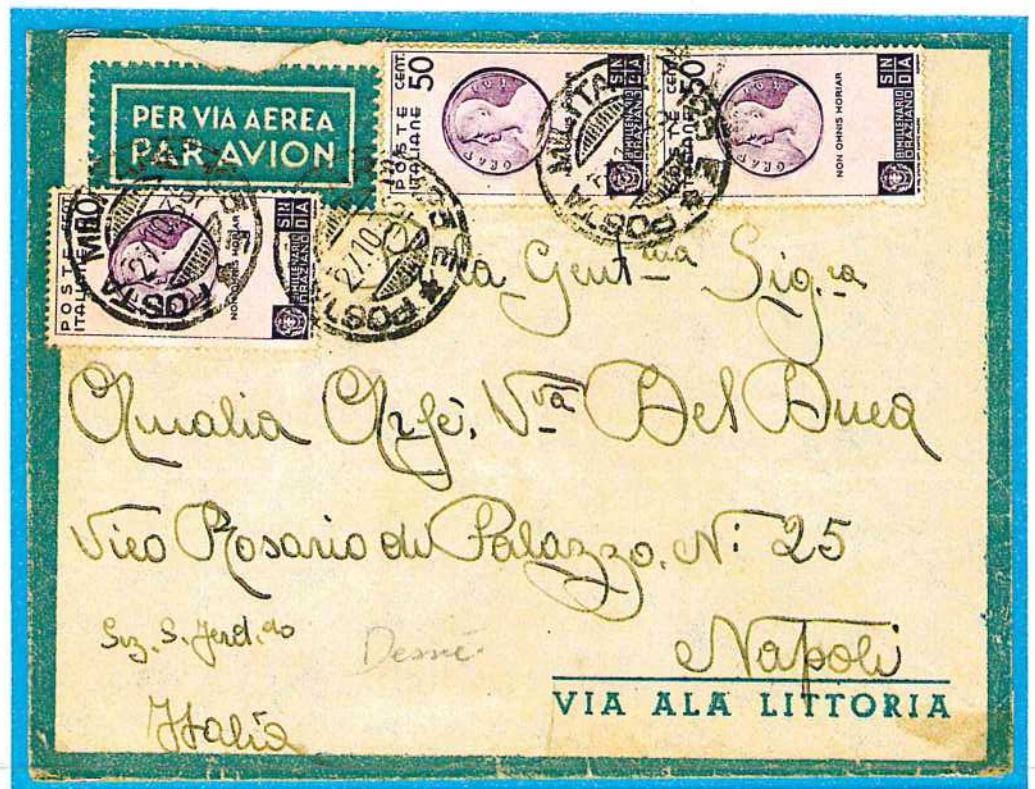 PER VIA AEREA
PAR AVION
POSTE ITALIANE CENT. 50
NON OMNIS MORIAR
BIMILLENARIO ORAZIANO
SIN DIA
POSTE ITALIANE CENT. 50
NON OMNIS MORIAR
BIMILLENARIO ORAZIANO
SIN DIA
POSTE ITALIANE
NON OMNIS MORIAR
BIMILLENARIO ORAZIANO
SIN DIA
POSTA
POSTA
27.10
POSTA
Gent.ma Sig.ra
Amalia Arfè, V.va Del Duca
Vico Rosario di Palazzo, N: 25
Sez. S. Ferd.do
Dessiè
Napoli
VIA ALA LITTORIA
Italia